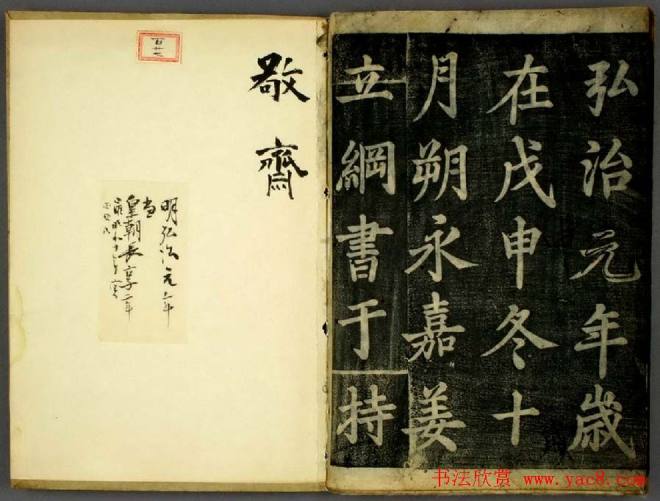 弘治元年歲
在戊申冬十
月朔永嘉姜
立綱書于持
敬齋
明弘治元年
当
皇朝長享二年
书法欣赏 www.yac8.com